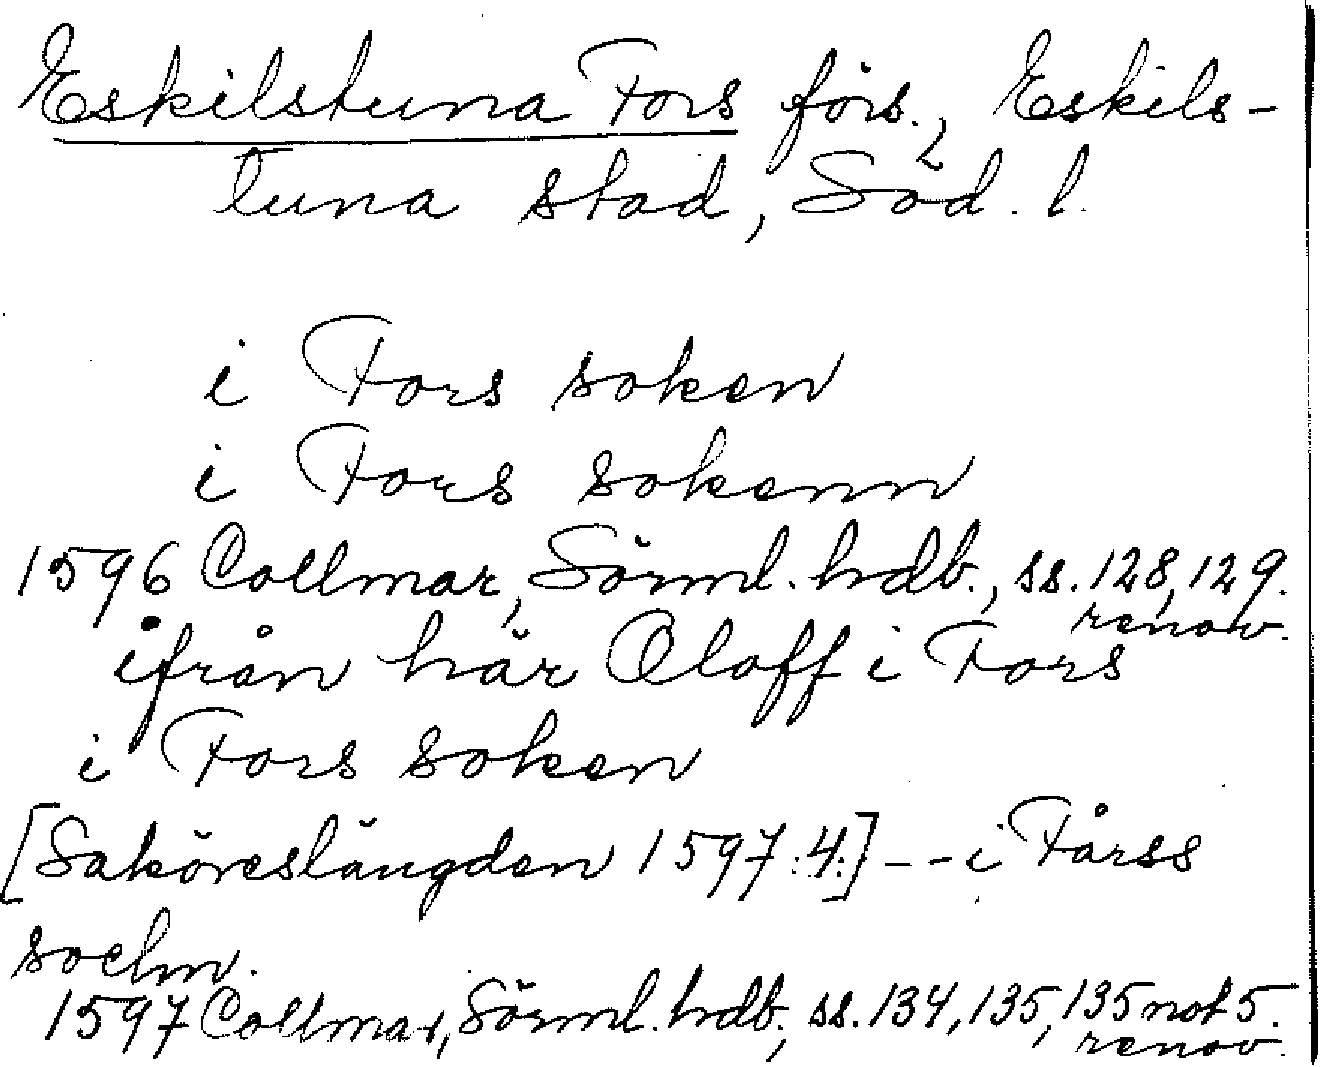 Eskilstuna Fors förs., Eskils-
tuna stad, Söd. l.
i Fors soken
i Fors sokenn
1596 Collmar, Sörml. hdb., ss. 128, 129.
renov.
ifrån här Oloff i Fors
i Fors soken
[Saköreslängden 1597:4:] -- i Fårss
sochn.
1597 Collmar, Sörml. hdb., ss. 134, 135, 135 not 5.
renov.